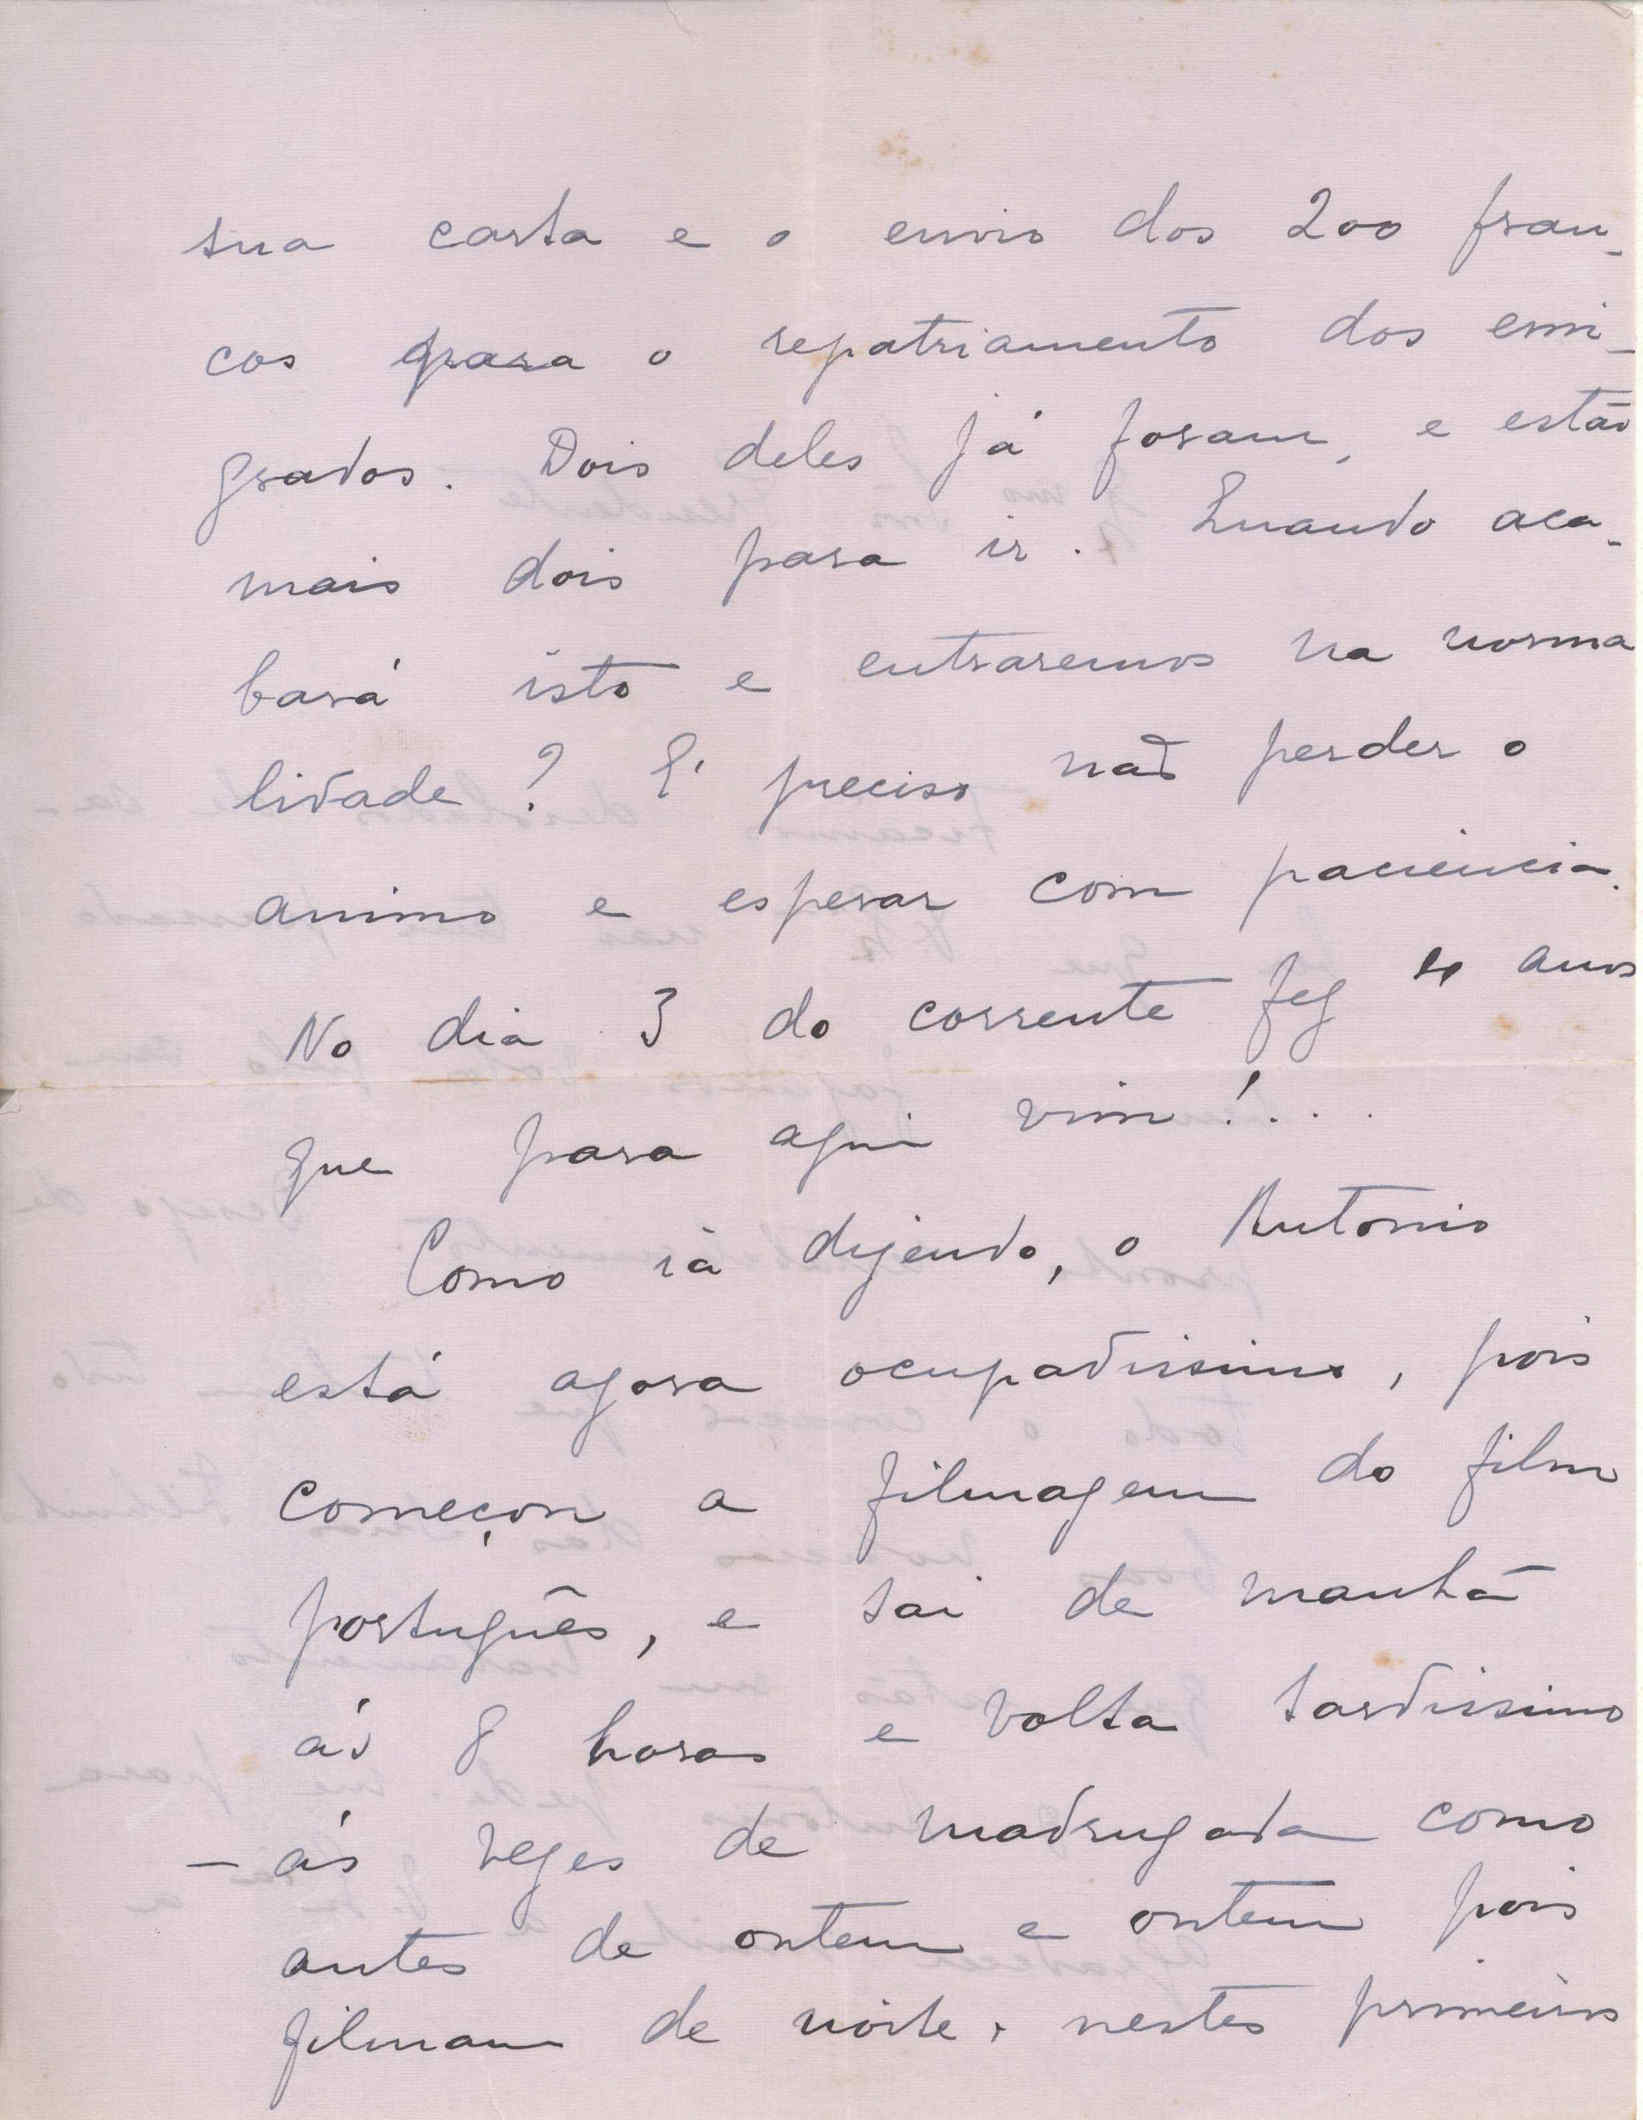 sua carta e o envio dos 200 fran-
cos para o repatriamento dos emi-
grados. Dois deles já foram, e estão
mais dois para ir. Quando aca-
bará isto e entraremos na norma
lidade? É preciso não perder o
animo e esperar com paciencia.
No dia 3 do corrente fez 4 anos
que para aqui vim!...
Como ia dizendo, o Antonio
está agora ocupadissimo, pois
começou a filmagem do film
português, e sai de manhã
ás 8 horas e volta tardissimo
- ás vezes de madrugada como
antes de ontem e ontem pois
filmam de noite, nestes primeiros